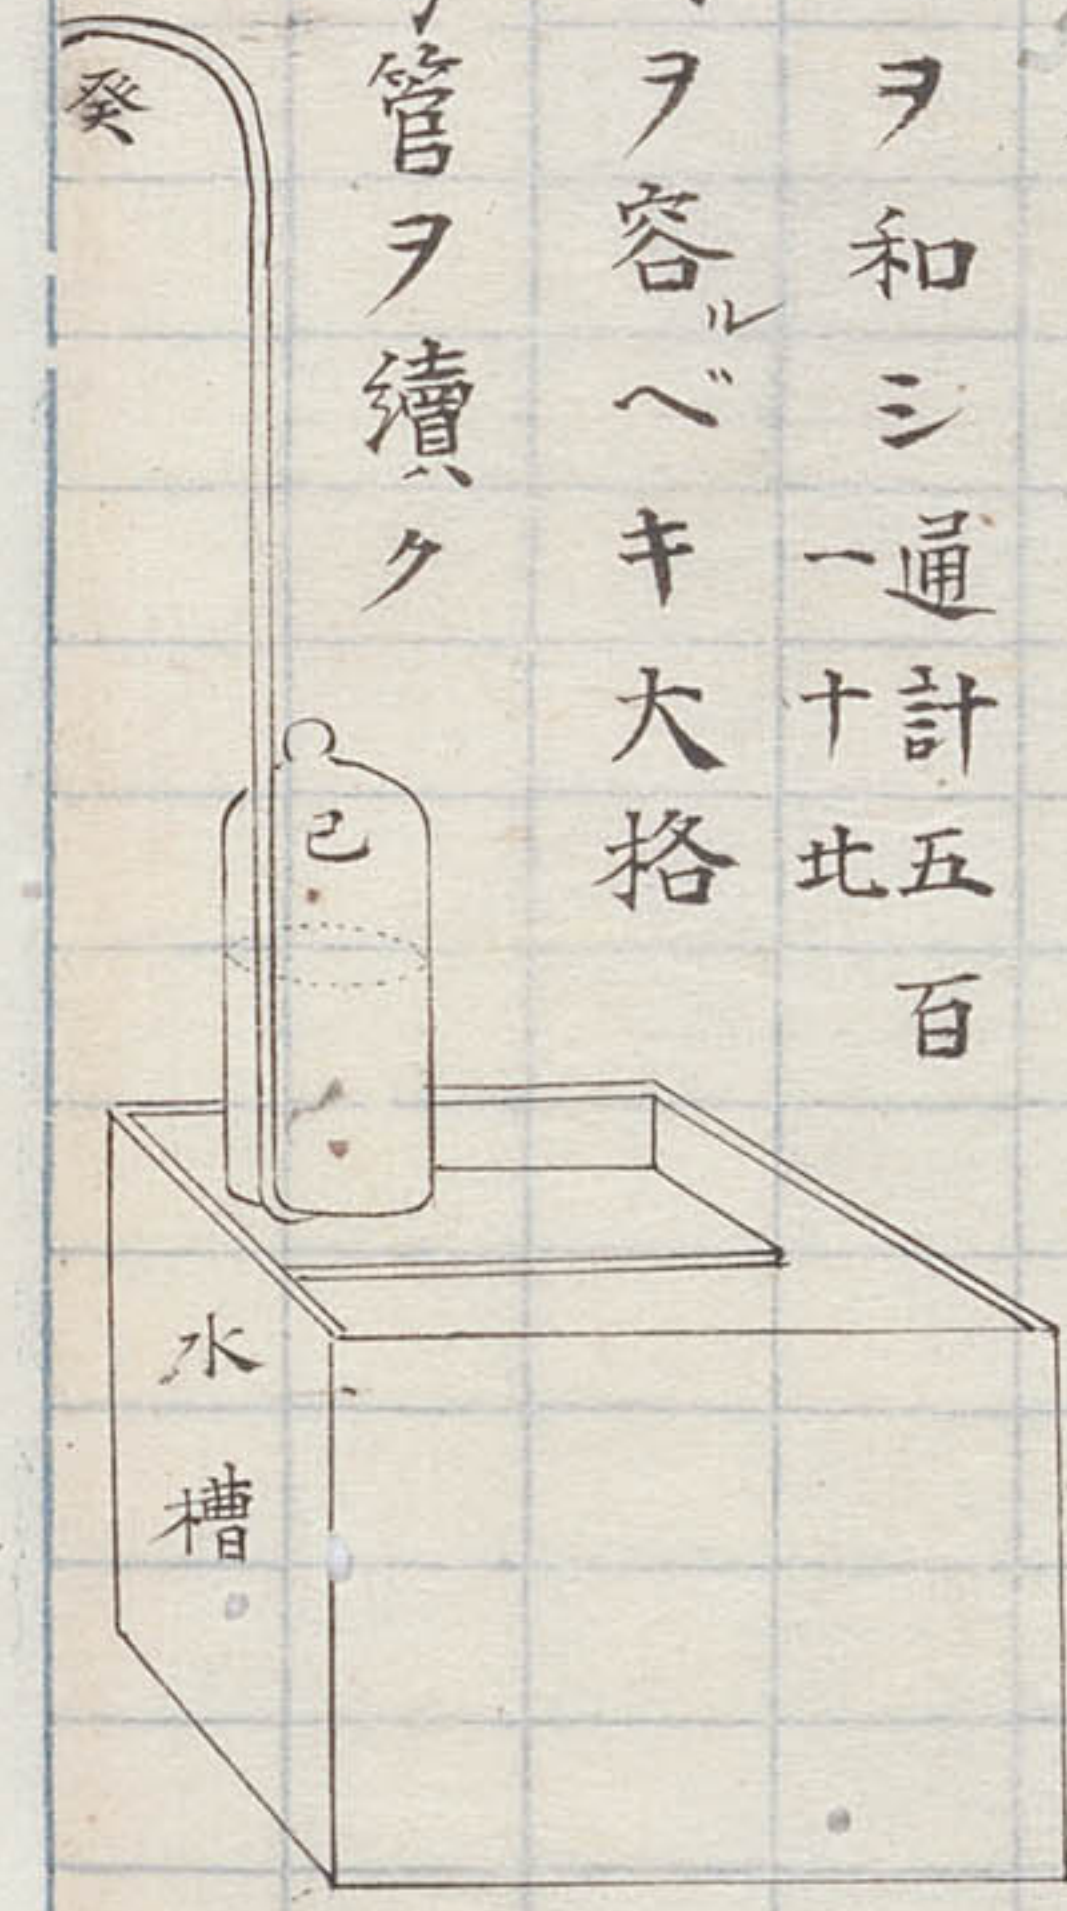 ヲ和シ通計五百
一十比
ヲ容ルベキ大格
管ヲ續ク
癸
己
水槽